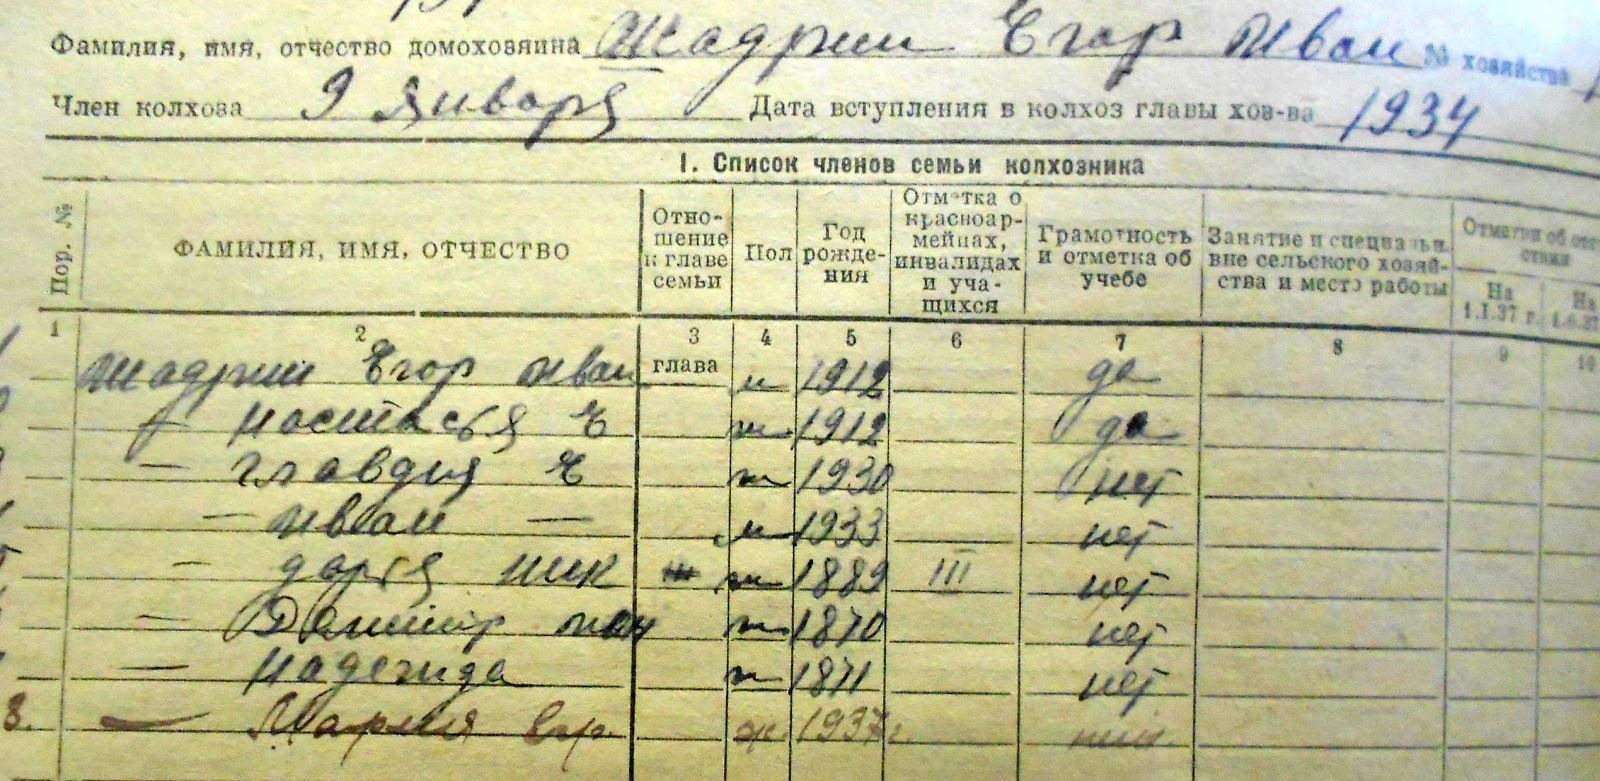 Фамилия, имя, отчество домохозяина Жадрин Егор Иван № хозяйства
Член колхоза 9 Января Дата вступления в колхоз главы хоз-ва 1934
I. Список членов семьи колхозника
Пор. № ФАМИЛИЯ, ИМЯ, ОТЧЕСТВО Отно-шение к главе семьи Пол Год рожде-ния Отметка о красноар-мейцах, инвалидах и уча-щихся Грамотность и отметка об учебе Занятие и специальн. вне сельского хозяй-ства и место работы Отметки об отсу-ствии На 1.I.37 г. На
1 2 3 4 5 6 7 8 9 10
Жадрин Егор Иван глава м 1912 да
— Настасья Е ж 1912 да
— Главдия Е ж 1930 нет
— Иван — м 1933 нет
— Дарья Ник ж 1889 III нет
— ж 1870 нет
— Надежида ж 1871 нет
8. — Мария Егр. ж. 1937г.